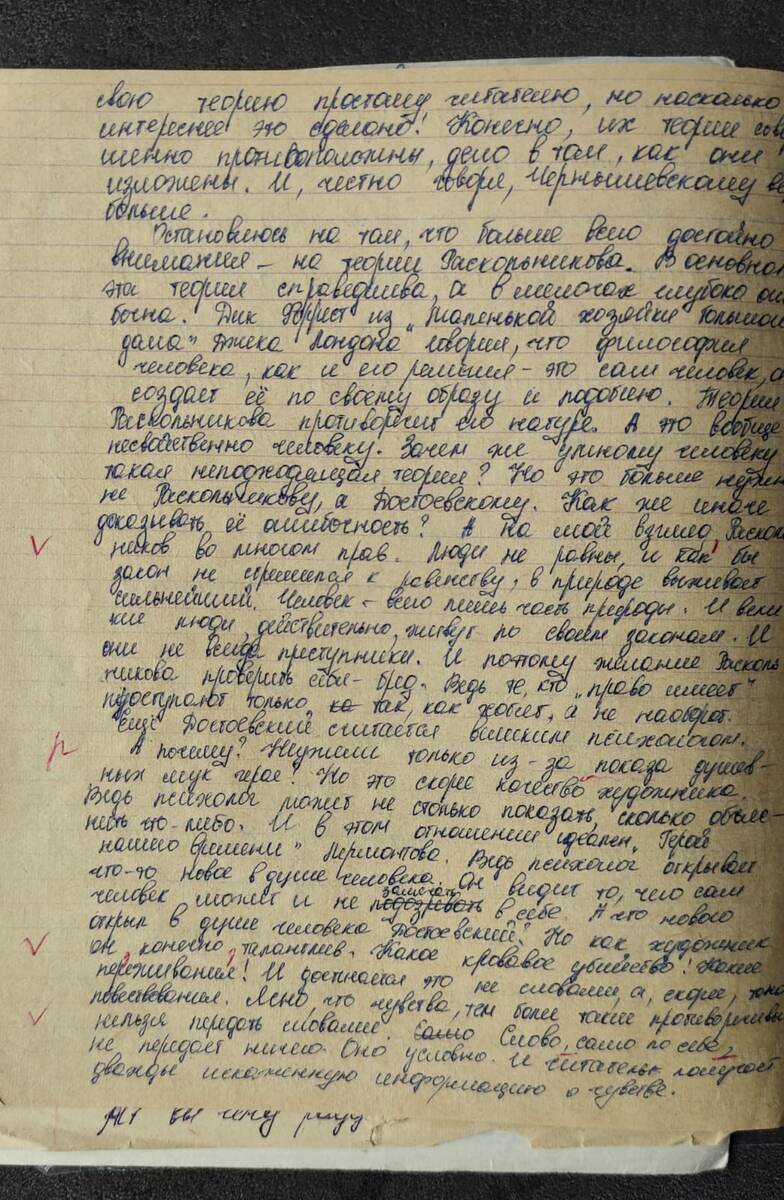 свою теорию простому читателю, но насколько
интереснее это сделано! Конечно, их теории сове
шенно противоположны, дело в том, как они
изложены. И, честно говоря, Чернышевскому ве
больше.
Остановлюсь на том, что больше всего достойно
внимания – на теории Раскольникова. В основном
эта теория справедлива, а в мелочах глубоко ош
бочна. Дик Форрест из „Маленькой хозяйки большого
дома" Джека Лондона говорил, что философия
человека, как и его религия – это сам человек, о
создает её по своему образу и подобию. Теория
Раскольникова противоречит его натуре. А это вообще
несвойственно человеку. Зачем же умному человеку
такая неподходящая теория? Но это больше нужн
не Раскольникову, а Достоевскому. Как же иначе
доказывать её ошибочность? А на мой взгляд, Расколь
ников во многом прав. Люди не равны, и как бы
закон не стремился к равенству, в природе выживает
сильнейший. Человек – всего лишь часть природы. И вели
кие люди, действительно, живут по своим законам. И
они не всегда преступники. И поэтому желание Расколь
никова проверить себя – бред. Ведь те, кто „право имеет"
поступают только так, как хотят, а не наоборот.
Ещё Достоевский считается великим психологом.
А почему? Неужели только из-за показа душев-
ных мук героя? Но это скорее качество художника.
Ведь психолог может не столько показать, сколько объяс-
нить что-либо. И в этом отношении идеален „Герой
нашего времени" Лермонтова. Ведь психолог открывает
что-то новое в душе человека. Он видит то, чего сам
человек может и не замечать в себе. А что нового
открыл в душе человека Достоевский? Но как художник
он, конечно, талантлив. Какое кровавое убийство! Какие
переживания! И достигается это не словами, а, скорее, тоно
повествования. Ясно, что чувства, тем более такие противоречивы
нельзя передать словами. Слово, само по себе,
не передает ничего. Оно условно. И читатель получает
дважды искаженную информацию о чувстве.